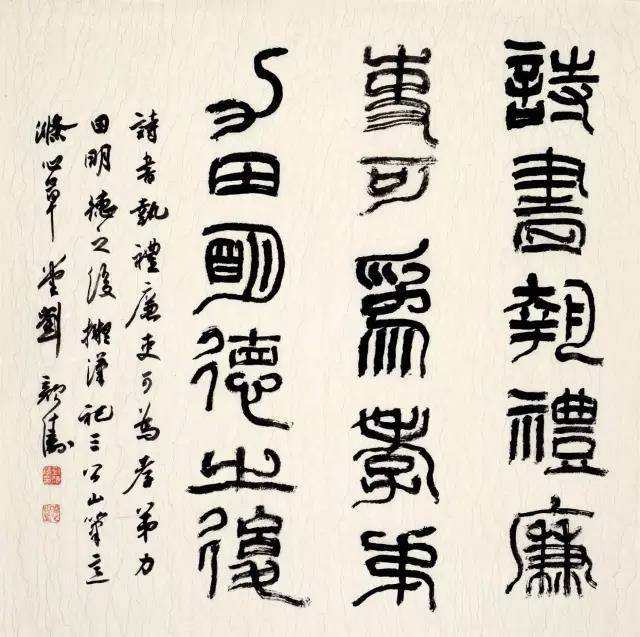 詩書執禮廉
吏可爲孝弟
力田明德之後
詩書執禮廉吏可為孝弟力
田明德之後擬漢祀三公山筆意
滌心草堂劉顏濤